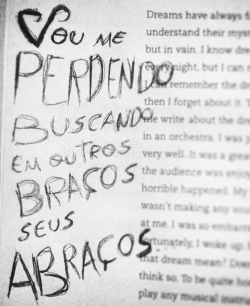 Vou me
PERDENDO
BUSCANDO
EM OUTROS
BRAÇOS
SEUS
ABRAÇOS.
Dreams have always
understand their myst
but in vain. I know dre
every night, but I can
remember the dr
then I forget about it.
me write about the dre
in an orchestra. I was
very well. It was a grea
the audience was enjoy
horrible happened. My
wasn't making any sou
at me. I was so embarr
Fortunately, I woke up
that dream mean? Does
think so. To be quite ho
play any musical instr